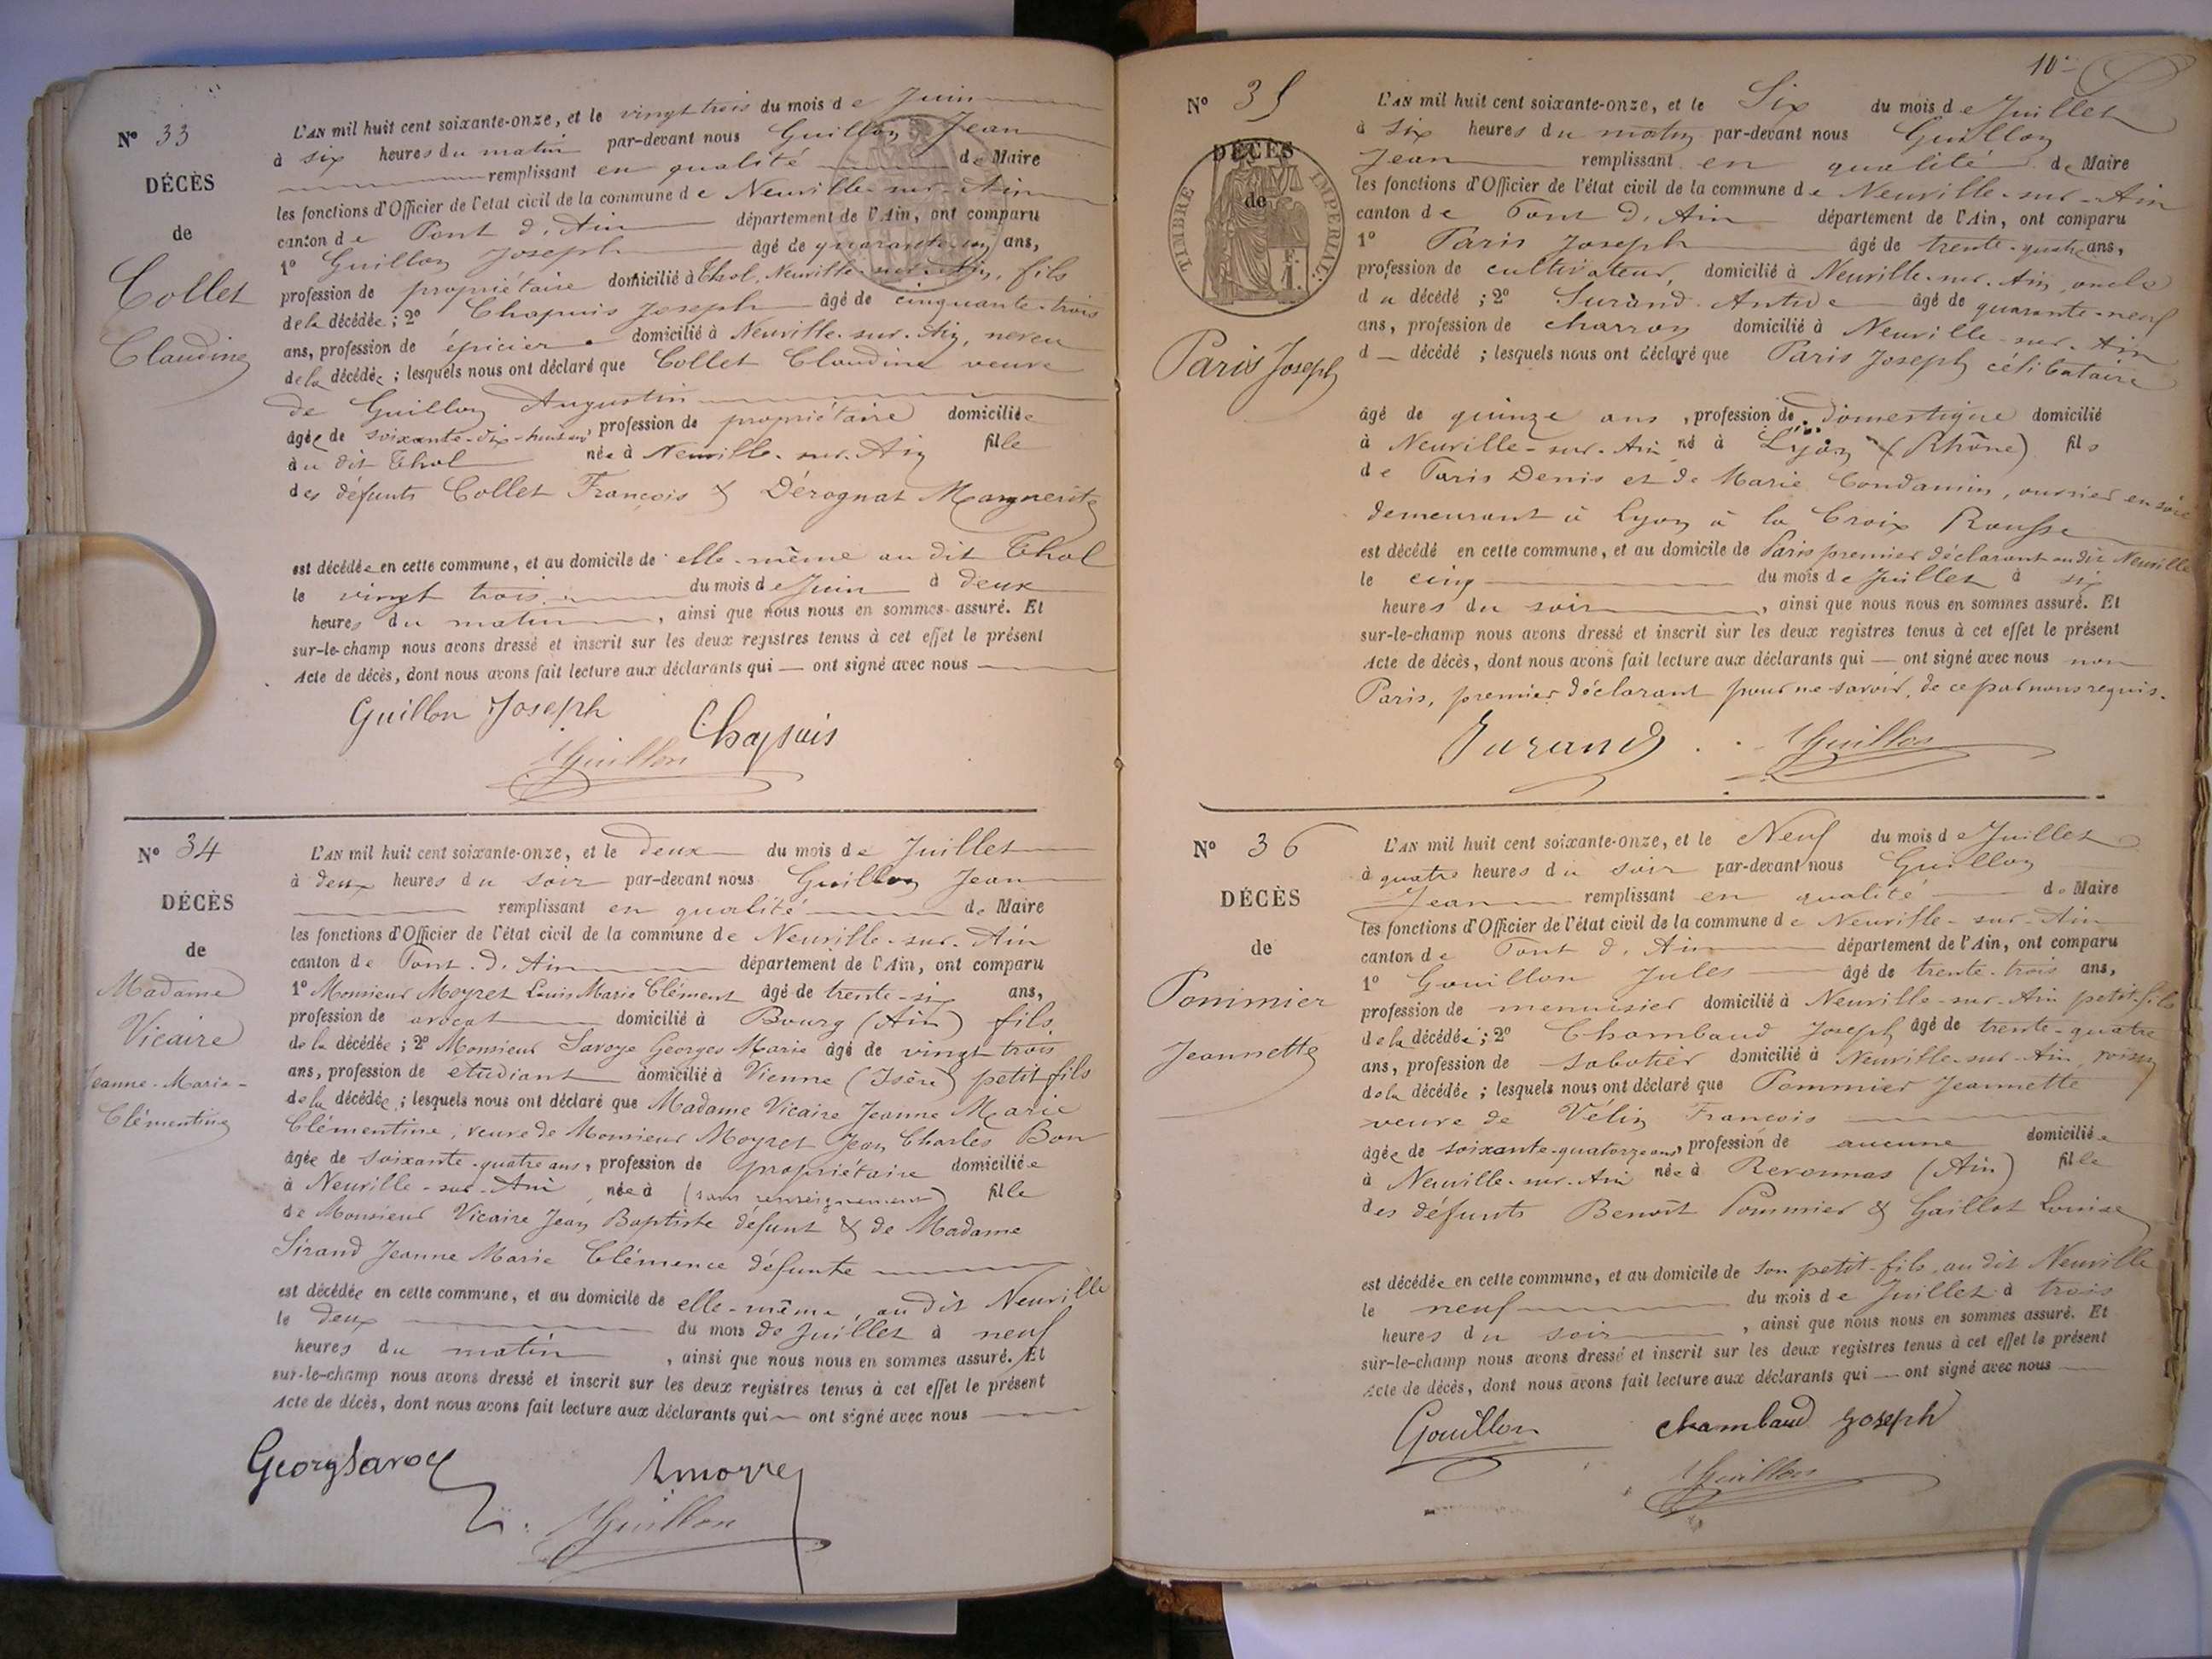 N° 33
DÉCÈS
de
Collet
Claudine
L'AN mil huit cent soixante-onze, et le vingt trois du mois de Juin
à six heures du matin par-devant nous Guillon Jean
remplissant en qualité de Maire
les fonctions d'Officier de l'état civil de la commune de Neuville-sur-Ain
canton de Pont d'Ain département de l'Ain, ont comparu
1° Guillon Joseph âgé de quarante-un ans,
profession de propriétaire domicilié à Thol, Neuville-sur-Ain, fils
de la décédée ; 2° Chapuis Joseph âgé de cinquante-trois
ans, profession de épicier domicilié à Neuville-sur-Ain, neveu
de la décédée ; lesquels nous ont déclaré que Collet Claudine veuve
de Guillon Augustin
âgée de soixante-dix-huit ans, profession de propriétaire domiciliée
au dit Thol née à Neuville-sur-Ain fille
des défunts Collet François & Dérognat Marguerite
est décédée en cette commune, et au domicile de elle-même au dit Thol
le vingt trois du mois de Juin à deux
heures du matin, ainsi que nous nous en sommes assuré. Et
sur-le-champ nous avons dressé et inscrit sur les deux registres tenus à cet effet le présent
Acte de décès, dont nous avons fait lecture aux déclarants qui — ont signé avec nous
Guillon Joseph Chapuis
Guillon
N° 34
DÉCÈS
de
Madame
Vicaire
Jeanne-Marie-
Clémentine
L'AN mil huit cent soixante-onze, et le deux du mois de Juillet
à deux heures du soir par-devant nous Guillon Jean
remplissant en qualité de Maire
les fonctions d'Officier de l'état civil de la commune de Neuville-sur-Ain
canton de Pont-d'Ain département de l'Ain, ont comparu
1° Monsieur Moyret Louis Marie Clément âgé de trente-six ans,
profession de avocat domicilié à Bourg (Ain) fils
de la décédée ; 2° Monsieur Savoye Georges Marie âgé de vingt trois
ans, profession de étudiant domicilié à Vienne (Isère) petit fils
de la décédée ; lesquels nous ont déclaré que Madame Vicaire Jeanne Marie
Clémentine, veuve de Monsieur Moyret Jean Charles Bon
âgée de soixante-quatre ans, profession de propriétaire domiciliée
à Neuville-sur-Ain, née à (sans renseignement) fille
de Monsieur Vicaire Jean Baptiste défunt & de Madame
Sirand Jeanne Marie Clémence défunte
est décédée en cette commune, et au domicile de elle-même, au dit Neuville
le deux du mois de Juillet à neuf
heures du matin, ainsi que nous nous en sommes assuré. Et
sur-le-champ nous avons dressé et inscrit sur les deux registres tenus à cet effet le présent
Acte de décès, dont nous avons fait lecture aux déclarants qui — ont signé avec nous
Guillon
10
N° 35
DÉCÈS
de
TIMBRE IMPERIAL
Paris Joseph
L'AN mil huit cent soixante-onze, et le Six du mois de Juillet
à six heures du matin par-devant nous Guillon
Jean remplissant en qualité de Maire
les fonctions d'Officier de l'état civil de la commune de Neuville-sur-Ain
canton de Pont d'Ain département de l'Ain, ont comparu
1° Paris Joseph âgé de trente-quatre ans,
profession de cultivateur domicilié à Neuville-sur-Ain, oncle
du décédé ; 2° Durand Antide âgé de quarante-neuf
ans, profession de charron domicilié à Neuville-sur-Ain
d — décédé ; lesquels nous ont déclaré que Paris Joseph célibataire
âgé de quinze ans, profession de domestique domicilié
à Neuville-sur-Ain né à Lyon (Rhône) fils
de Paris Denis et de Marie Condamin, ouvrier en soie
demeurant à Lyon à la Croix Rousse
est décédé en cette commune, et au domicile de Paris premier déclarant au dit Neuville
le cinq du mois de Juillet à six
heures du soir, ainsi que nous nous en sommes assuré. Et
sur-le-champ nous avons dressé et inscrit sur les deux registres tenus à cet effet le présent
Acte de décès, dont nous avons fait lecture aux déclarants qui — ont signé avec nous non
Paris, premier déclarant pour ne savoir, de ce par nous requis.
Durand Guillon
N° 36
DÉCÈS
de
Pommier
Jeannette
L'AN mil huit cent soixante-onze, et le Neuf du mois de Juillet
à quatre heures du soir par-devant nous Guillon
Jean remplissant en qualité de Maire
les fonctions d'Officier de l'état civil de la commune de Neuville-sur-Ain
canton de Pont d'Ain département de l'Ain, ont comparu
1° Gouillon Jules âgé de trente-trois ans,
profession de menuisier domicilié à Neuville-sur-Ain petit-fils
de la décédée ; 2° Chambaud Joseph âgé de trente-quatre
ans, profession de sabotier domicilié à Neuville-sur-Ain, voisin
de la décédée ; lesquels nous ont déclaré que Pommier Jeannette
veuve de Vélin François
âgée de soixante-quatorze ans, profession de aucune domiciliée
à Neuville-sur-Ain née à Revonnas (Ain) fille
des défunts Benoît Pommier & Gaillot Louise
est décédée en cette commune, et au domicile de son petit-fils, au dit Neuville
le neuf du mois de Juillet à trois
heures du soir, ainsi que nous nous en sommes assuré. Et
sur-le-champ nous avons dressé et inscrit sur les deux registres tenus à cet effet le présent
Acte de décès, dont nous avons fait lecture aux déclarants qui — ont signé avec nous
Gouillon chambaud joseph
Guillon